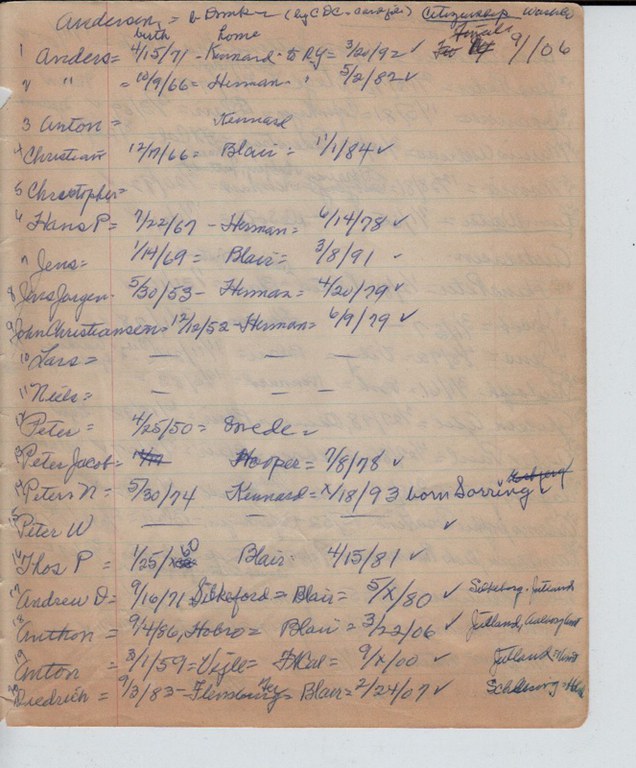 Andersen = b Denmark (by CDC = Citizenship
birth Rome
1 Anders = 4/15/71 - Kennard to NY = 3/20/92 ✓ 9/06
2 " " = 10/9/66 = Herman - 5/2/82 ✓
3 Anton = Kennard
4 Christian 12/17/66 = Blair = 11/1/84 ✓
5 Christopher =
6 Hans P = 7/22/67 - Herman = 6/14/78 ✓
7 Jens = 1/14/69 = Blair = 3/8/91 ✓
8 Jens Jorgen - 5/30/53 - Herman = 4/20/79 ✓
9 John Christiansen = 12/12/52 - Herman = 6/9/79 ✓
10 Lars = — — —
11 Neils = — — —
12 Peter = 4/25/50 = Swede =
13 Peter Jacob = Hooper = 7/8/78 ✓
14 Peters N = 5/30/74 Kennard = x/18/93 born Sorring ✓
15 Peter W — — — ✓
16 Thos P = 1/25/60 Blair - 4/15/81 ✓
17 Andrew D = 9/16/71 Silkeford = Blair = 5/x/80 ✓ Silkeborg - Jutland
18 Anthon = 9/14/86, Hobro = Blair = 3/22/06 ✓ Jutland,
19 Anton = 3/1/59 = Vigle = = 9/x/00 ✓ Jutland =
20 Diedrich = 9/3/83 - Flensburg = Blair = 2/24/07 ✓